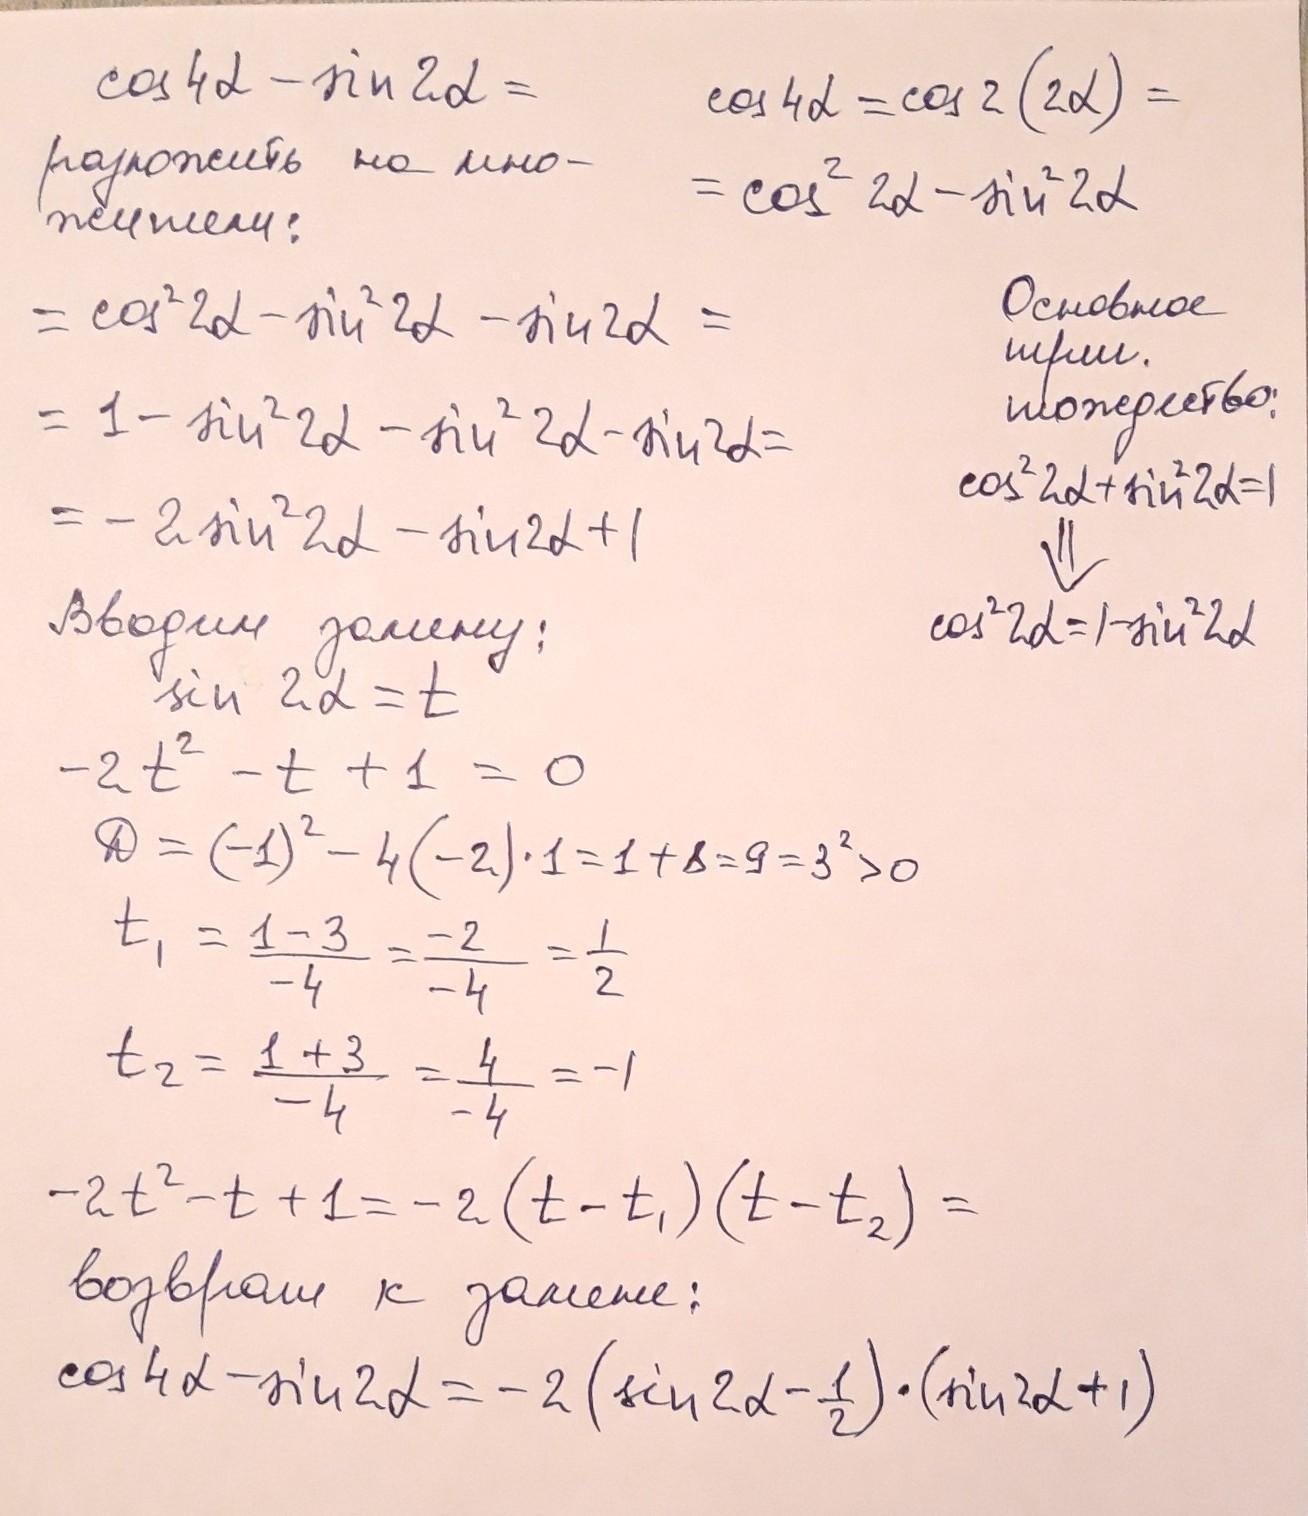 cos4α – sin2α =
разложить на мно-
жители:
cos4α = cos2(2α) =
= cos² 2α – sin² 2α
= cos² 2α – sin² 2α – sin2α =
= 1 – sin² 2α – sin² 2α – sin2α =
= – 2 sin² 2α – sin2α + 1
Основное
триг.
тождество:
cos² 2α + sin² 2α = 1
⇓
cos² 2α = 1 – sin² 2α
Вводим замену:
sin 2α = t
–2t² – t + 1 = 0
D = (–1)² – 4(–2)·1 = 1 + 8 = 9 = 3² > 0
t₁ = (1 – 3)/(–4) = (–2)/(–4) = 1/2
t₂ = (1 + 3)/(–4) = 4/(–4) = –1
–2t² – t + 1 = –2(t – t₁)(t – t₂) =
возврат к замене:
cos4α – sin2α = –2(sin2α – 1/2)·(sin2α + 1)